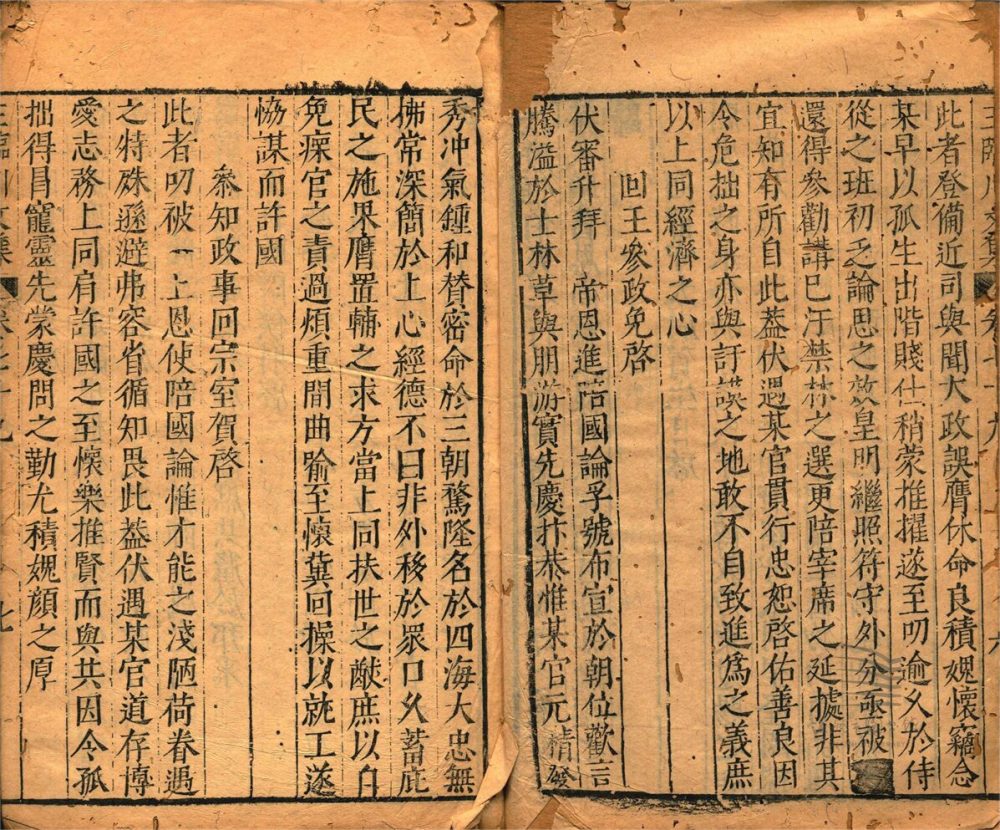 此者登備近司與聞大政誤膺休命良積媿懷竊念
某早以孤生出階賤仕稍蒙推擢遂至叨逾乂於侍
從之班初乏論思之效皇明繼照符守外分亟被
還得參勸講已汙禁林之選更陪宰席之延據非其
宜知有所自此葢伏遇某官貫行忠恕啓佑善良因
令危拙之身亦與訏謨之地敢不自致進爲之義庶
以上同經濟之心
回王參政免啓
伏審升拜 帝恩進陪國論孚號布宣於朝位歡言
騰溢於士林草與朋游實先慶抃恭惟某官元精發
秀冲氣鍾和替密命於三朝驁隆名於四海大忠無
拂常深簡於上心經德不曰非外移於眾口久蓄庇
民之施果膺置輔之求方當上同扶世之猷庶以自
免瘝官之責過煩重間曲喻至懷冀回操以就工遂
恊謀而許國
叅知政事回宗室賀啓
此者叨被 上恩使陪國論惟才能之淺陋荷眷遇
之特殊遜避弗容省循知畏此葢伏遇某官道存博
愛志務上同肩許國之至懷樂推賢而與共因令孤
拙得冒寵靈先蒙慶問之勤尤積媿顔之厚